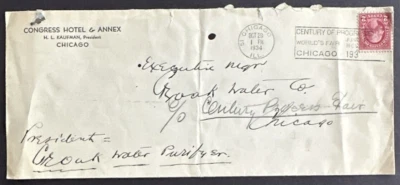 CONGRESS HOTEL & ANNEX
H. L. KAUFMAN, President
CHICAGO
CHICAGO
OCT 19
1 PM
1934
ILL.
CENTURY OF PROGRESS
WORLD'S FAIR
CHICAGO 193
Executive Mgr
Water Co.
c/o Century Progress Fair
Chicago
President =
Water Purifyer